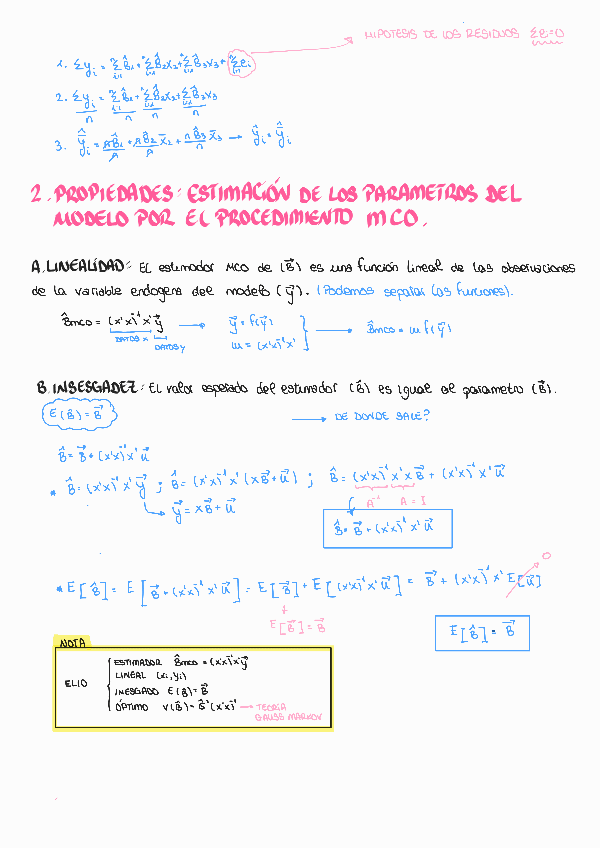 HIPOTESIS DE LOS RESIDUOS Σei=0
1. Σyi = Σβ̂1 + Σβ̂2x2 + Σβ̂3x3 + Σei
2. Σyi/n = Σβ̂1/n + Σβ̂2x2/n + Σβ̂3x3/n
3. ŷi = nβ̂1/n + nβ̂2x̄2/n + nβ̂3x̄3/n → ŷi = ŷi
2. PROPIEDADES: ESTIMACIÓN DE LOS PARAMETROS DEL
MODELO POR EL PROCEDIMIENTO MCO.
A. LINEALIDAD: El estimador MCO de (B⃗) es una función lineal de las observaciones
de la variable endogena del modelo (y⃗). (Podemos separar las funciones).
B̂mco = (x'x)⁻¹x'y⃗ → y⃗ = f(y⃗) → B̂mco = m f(y⃗)
DATOS X m = (x'x)⁻¹x'
DATOS Y
B. INSESGADEZ: El valor esperado del estimador (B̂) es igual al parametro (B⃗).
E(B̂) = B⃗ → DE DONDE SALE?
B̂ = B⃗ + (x'x)⁻¹x'u⃗
* B̂ = (x'x)⁻¹x'y⃗ ; B̂ = (x'x)⁻¹x'(xB⃗+u⃗) ; B̂ = (x'x)⁻¹x'xB⃗ + (x'x)⁻¹x'u⃗
A⁻¹ A = I
y⃗ = xB⃗ + u⃗
B̂ = B⃗ + (x'x)⁻¹x'u⃗
* E[B̂] = E[B⃗ + (x'x)⁻¹x'u⃗] = E[B⃗] + E[(x'x)⁻¹x'u⃗] = B⃗ + (x'x)⁻¹x'E[u⃗] 0
E[B⃗] = B⃗
E[B̂] = B⃗
NOTA
ESTIMADOR B̂mco = (x'x)⁻¹x'y⃗
LINEAL (xi, yi)
ELIO
INESGADO E(B̂) = B⃗
ÓPTIMO V(B̂) = σ̂²(x'x)⁻¹ → TEORIA
GAUSS MARKOV